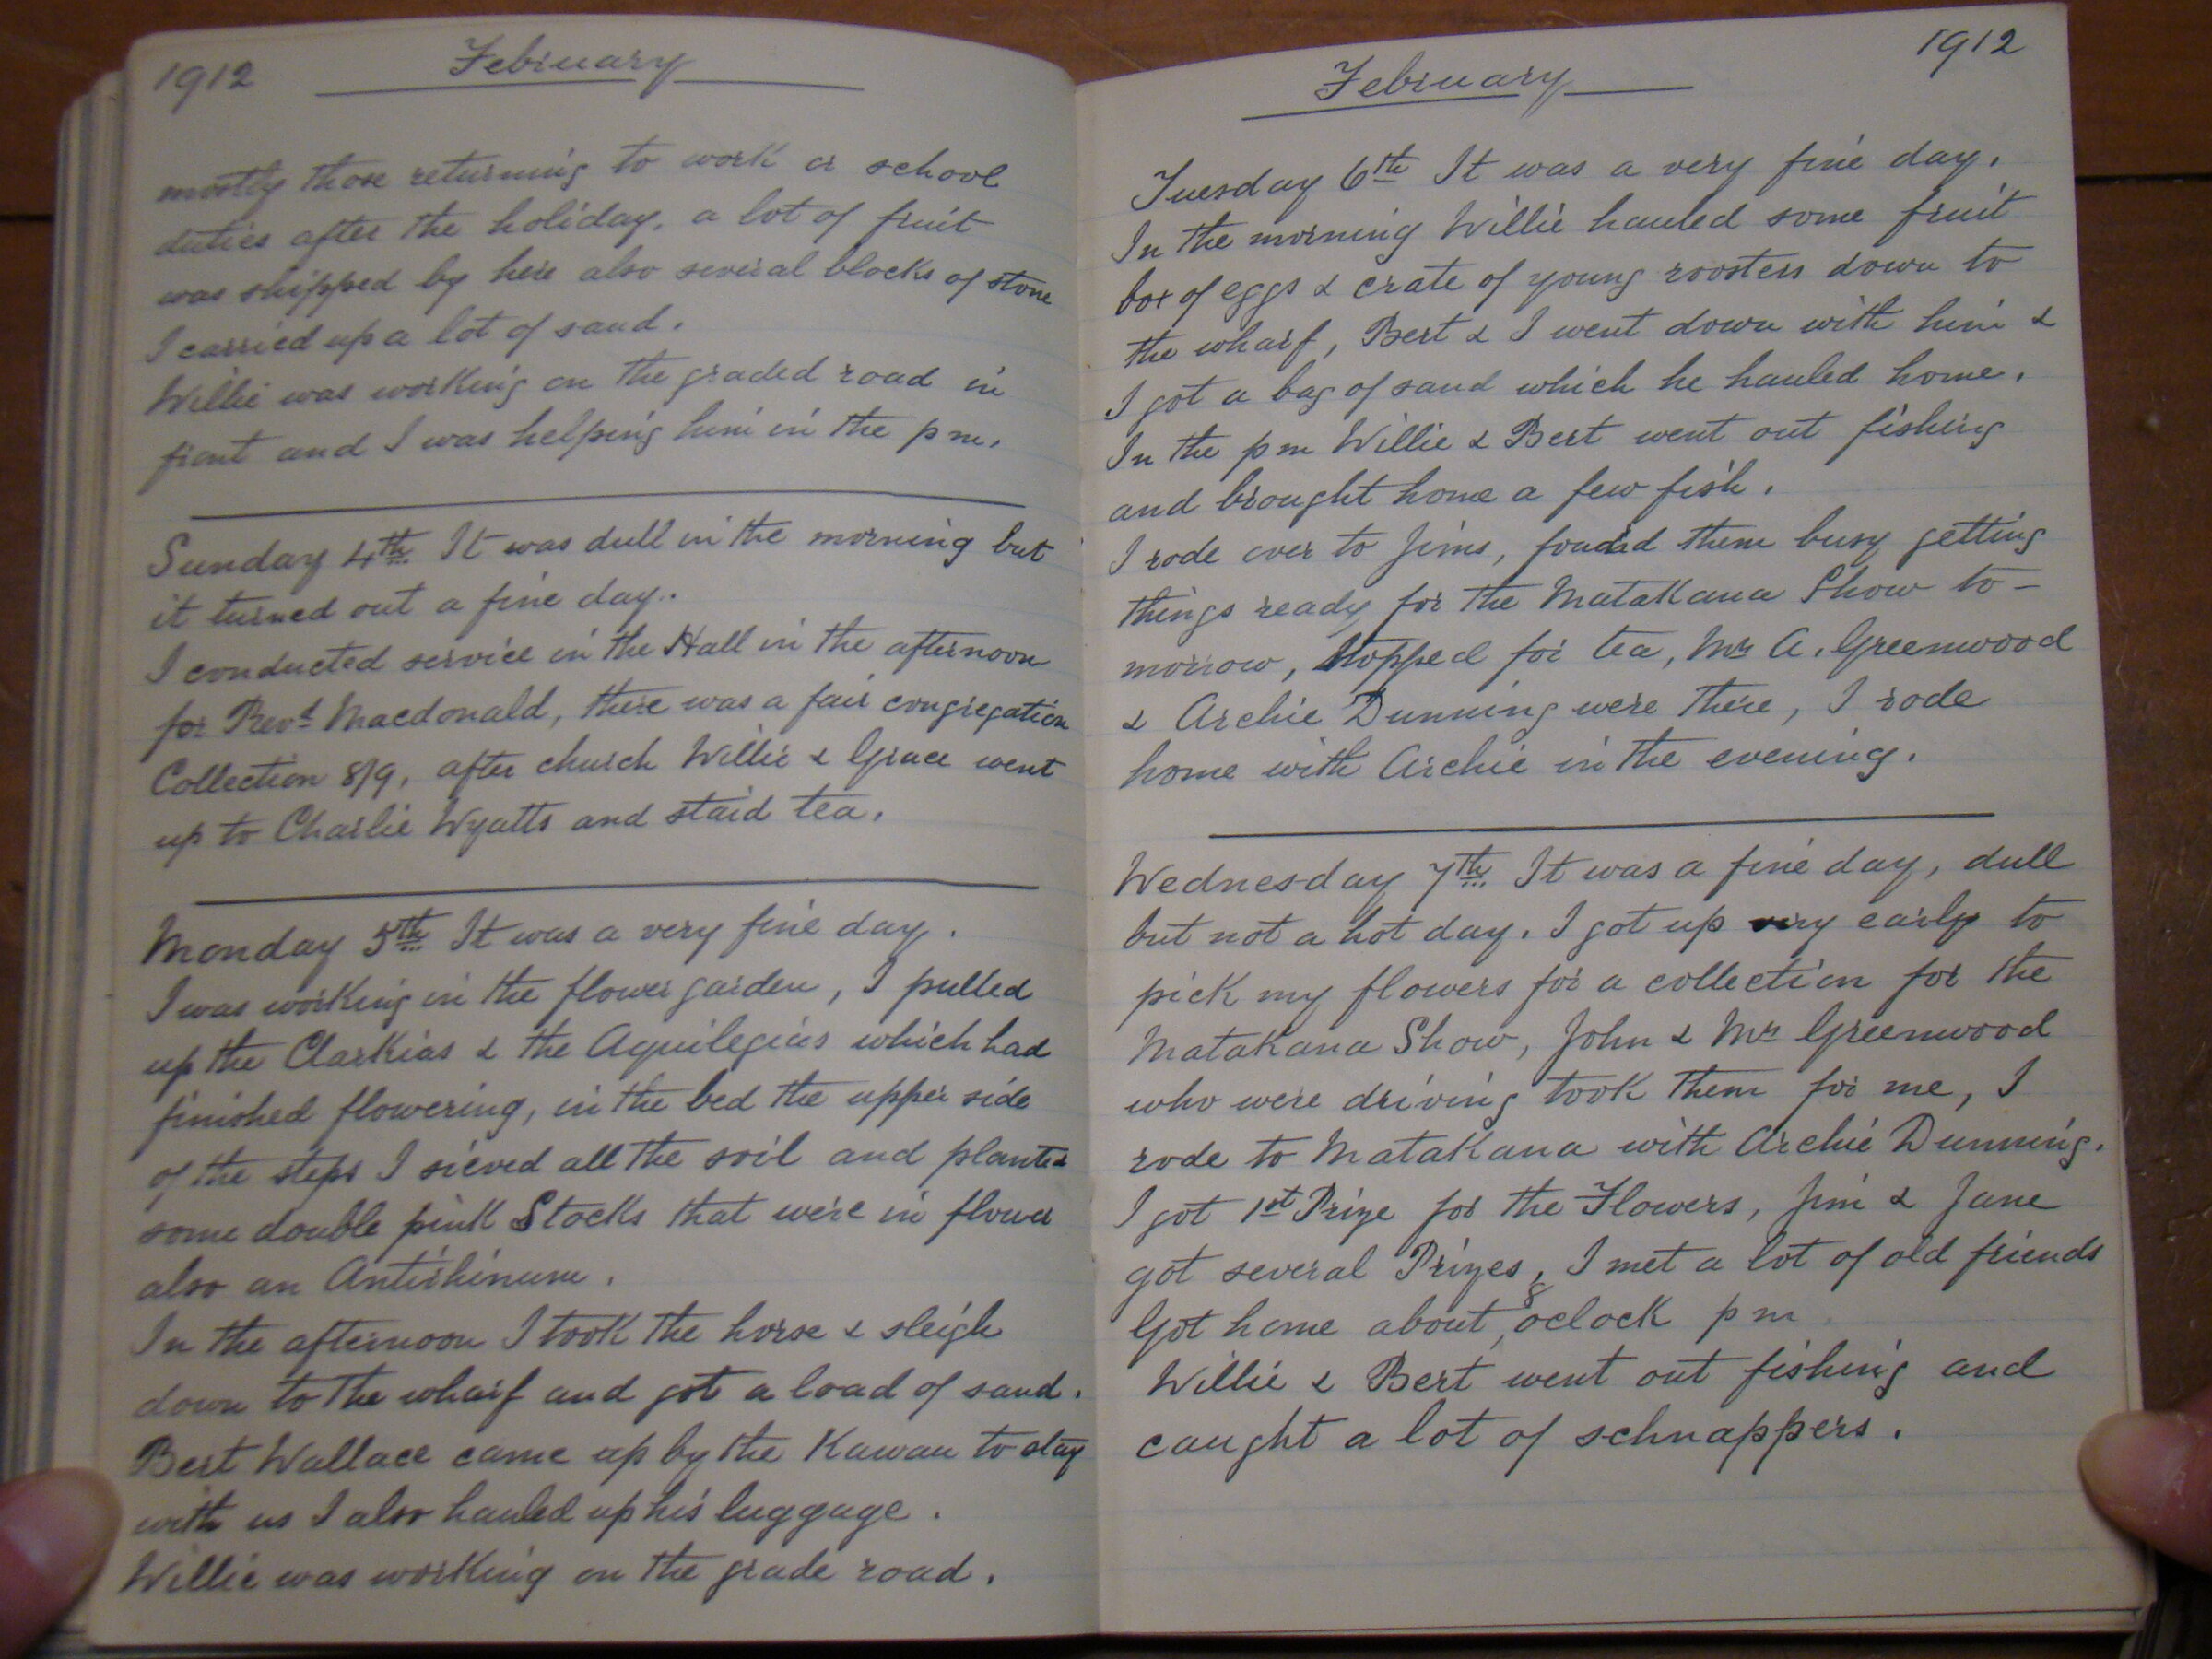 1912 February
mostly those returning to work or school
duties after the holiday. a lot of fruit
was shipped by here also several blocks of stone
I carried up a lot of sand.
Willie was working on the graded road in
front and I was helping him in the pm.
Sunday 4th It was dull in the morning but
it turned out a fine day.
I conducted service in the Hall in the afternoon
for Revd Macdonald, there was a fair congregation
Collection 8/9, after church Willie & Grace went
up to Charlie Wyatts and staid tea.
Monday 5th It was a very fine day.
I was working in the flower garden, I pulled
up the Clarkias & the Aquilegias which had
finished flowering, in the bed the upper side
of the steps I sieved all the soil and planted
some double pink Stocks that were in flower
also an Antirhinum.
In the afternoon I took the horse & sleigh
down to the wharf and got a load of sand.
Bert Wallace came up by the Kawau to stay
with us I also hauled up his luggage.
Willie was working on the grade road.
February 1912
Tuesday 6th It was a very fine day.
In the morning Willie hauled some fruit
box of eggs & crate of young roosters down to
the wharf, Bert & I went down with him &
I got a bag of sand which he hauled home.
In the pm Willie & Bert went out fishing
and brought home a few fish.
I rode over to Jims, found them busy getting
things ready for the Matakana Show to-
morrow, stopped for tea, Mr A. Greenwood
& Archie Dunning were there, I rode
home with Archie in the evening.
Wednesday 7th It was a fine day, dull
but not a hot day. I got up very early to
pick my flowers for a collection for the
Matakana Show, John & Mr Greenwood
who were driving took them for me, I
rode to Matakana with Archie Dunning.
I got 1st Prize for the Flowers, Jim & Jane
got several Prizes, I met a lot of old friends
Got home about 8 oclock pm
Willie & Bert went out fishing and
caught a lot of schnappers.